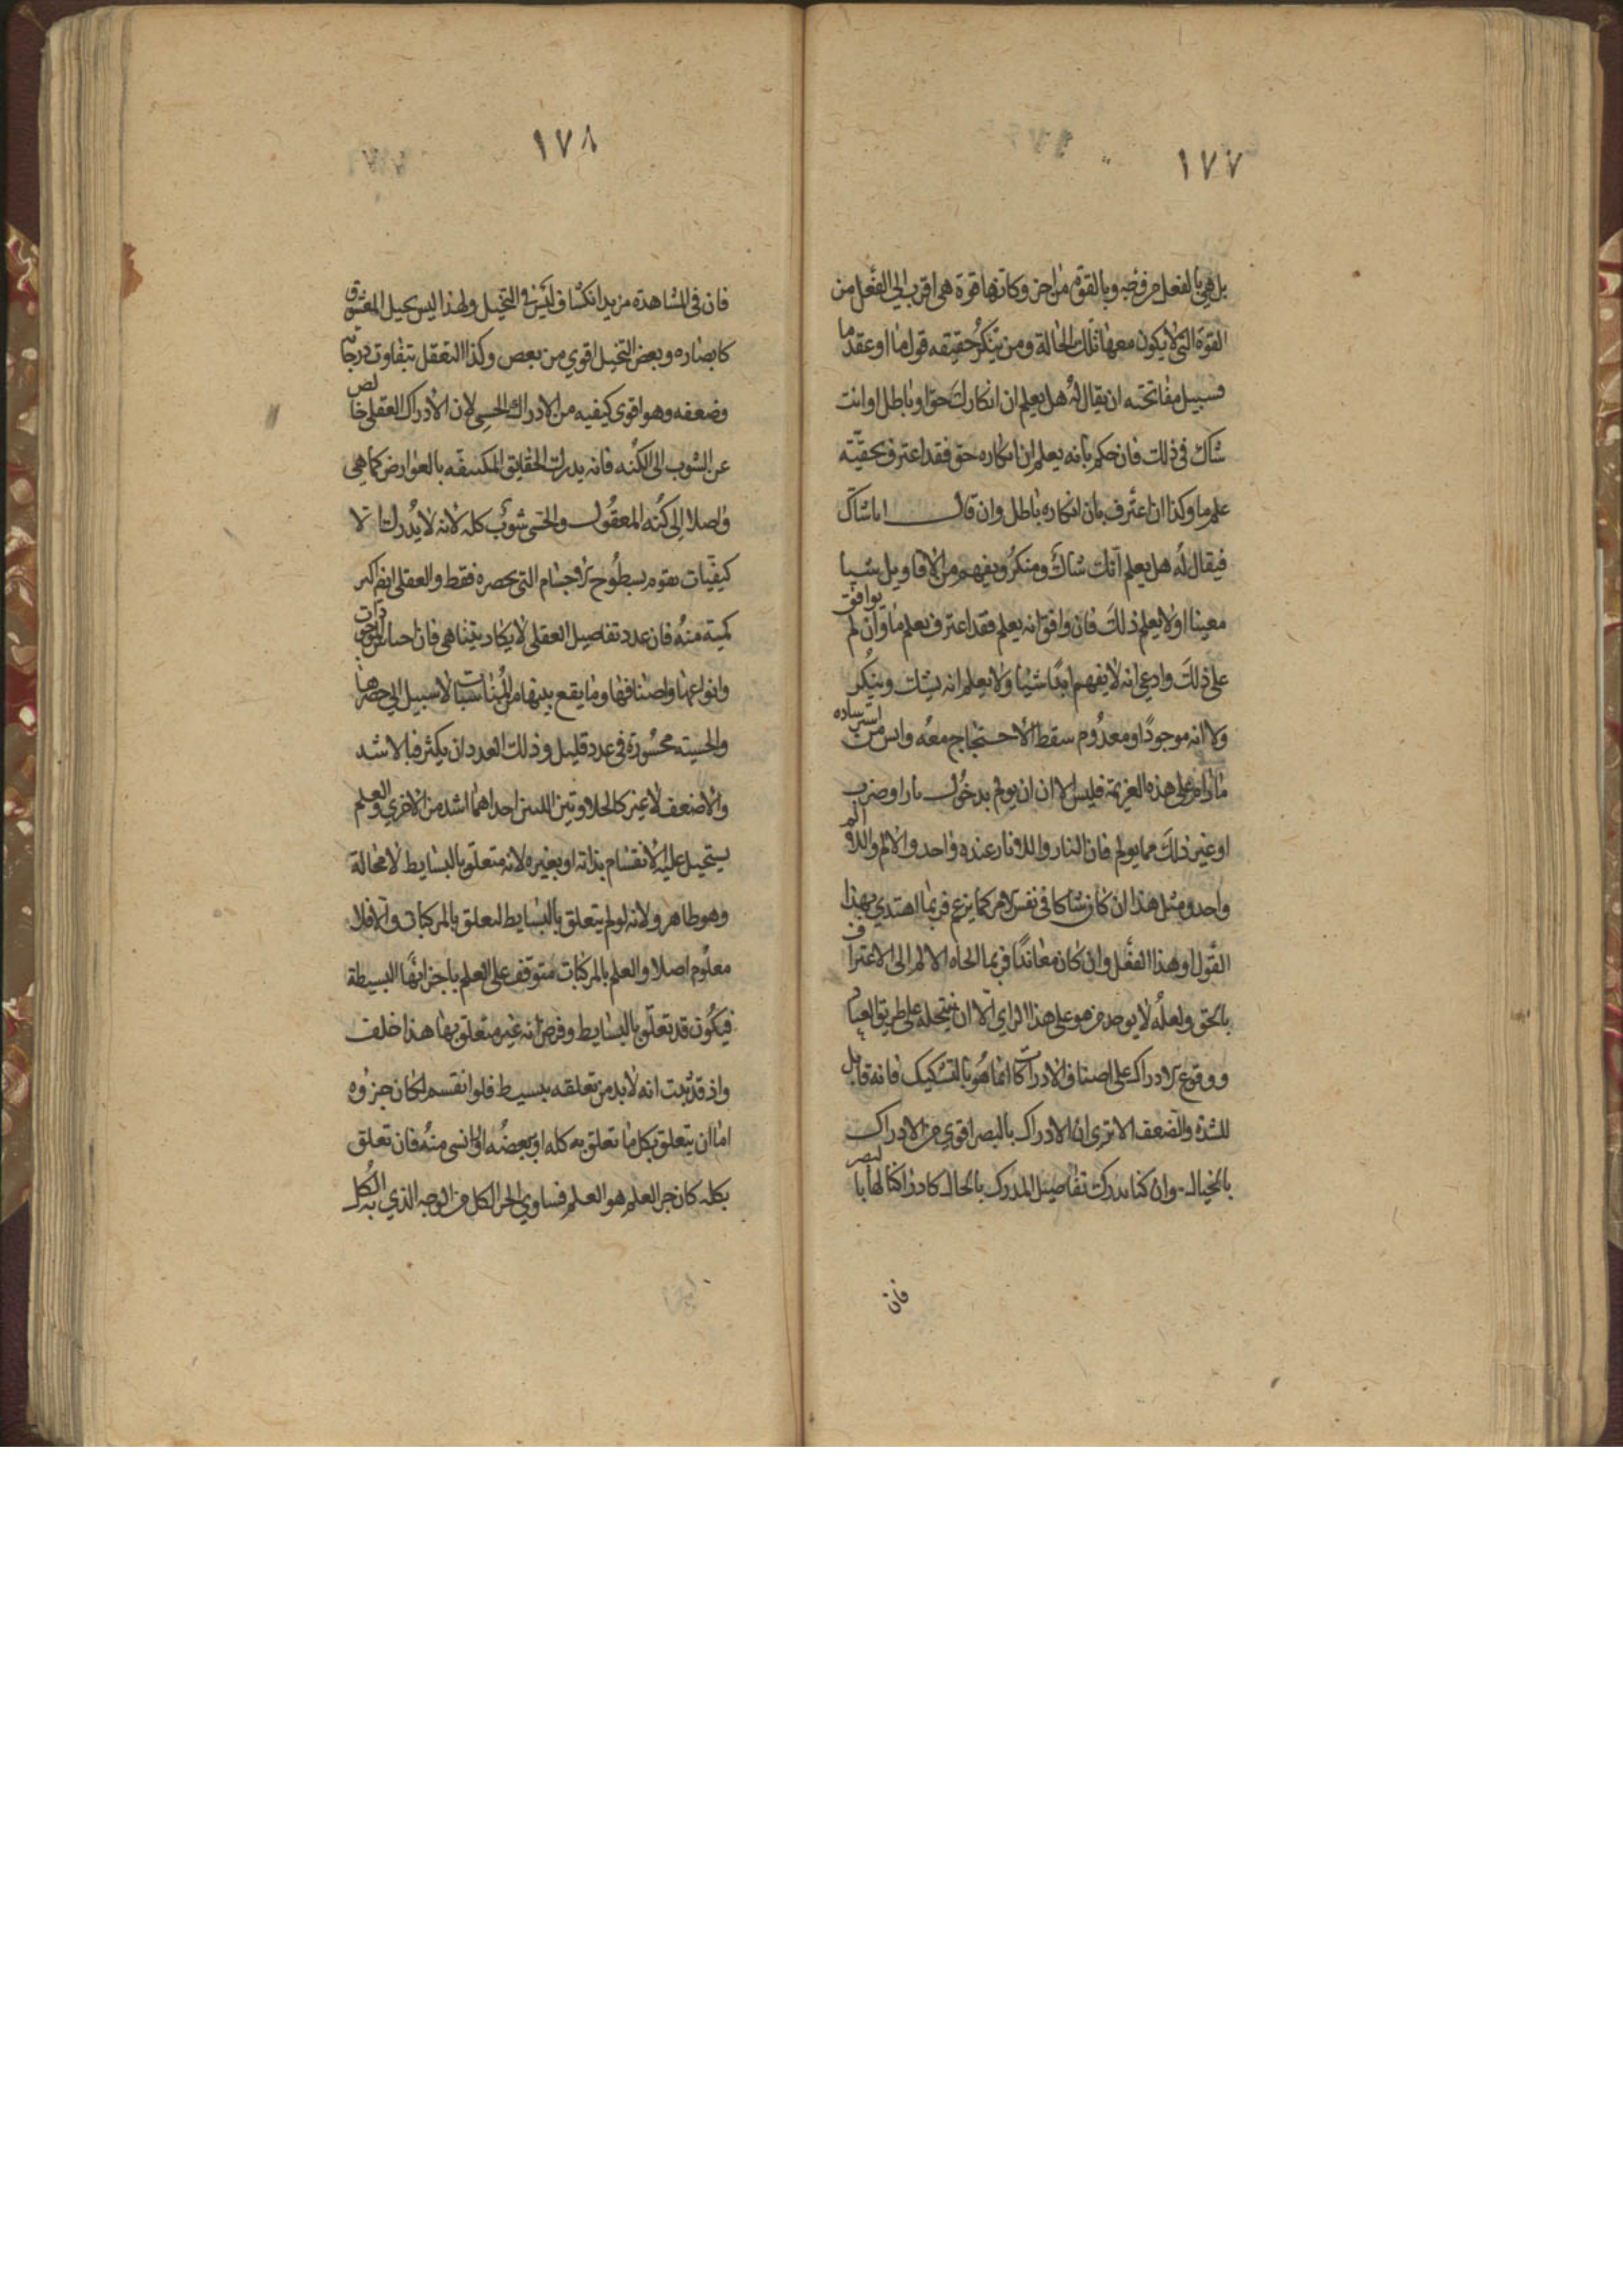 ١٧٧
بل هي بالفعل من وجه وبالقوة من اخر وكانها قوة هي اقرب الى الفعل من
القوة التي لا يكون معها تلك الحالة ومن ينكر حقيقه قول ما او عقد ما
فسبيل مفاتحته ان يقال له هل يعلم ان انكارك حق او باطل او انت
شاك في ذلك فان حكم بانه يعلم ان انكاره حق فقد اعترف بحقيّة
علم ما وكذا ان اعترف بان انكاره باطل وان قال انا شاك
فيقال له هل يعلم انك شاك ومنكر ويفهم من الاقاويل شيا
معينا او لا يعلم ذلك فان وافق انه يعلم فقد اعترف بعلم ما وان لم يوافق
على ذلك وادعى انه لا يفهم ابدا شيا ولا يعلم انه يشك وينكر
ولا انه موجود او معدوم سقط الاحتجاج معه وايس من استرشاده
ما دام على هذه العزيمة فليس الا ان يولم بدخول نار او ضرب
او غير ذلك مما يولم فان النار واللا نار عنده واحد والالم واللا الم
واحد ومثل هذا ان كان شاكا في نفس الامر كما يزعم فربما اهتدي بهذا
القول او بهذا الفعل وان كان معاندا فربما الجاه الالم الى الاعتراف
بالحق ولعله لا يوجد من هو على هذا الراي الا ان ينتحله على طريق العناد
ووقوع الادراك على اصناف الادراكات انما هو بالتشكيك فانه قابل
للشدة والضعف الا ترى ان الادراك بالبصر اقوي من الادراك
بالخيال وان كنا ندرك تفاصيل المدرك بالخيال كادراكنا لها بالبصر
فان
١٧٨
فان في المشاهدة مزيد انكشاف ليس في التخيل ولهذا ليس تخيل المعشوق
كابصاره وبعض التخيل اقوي من بعض وكذا التعقل يتفاوت درجاته
وضعفه وهو اقوى كيفيه من الادراك الحسي لان الادراك العقلي خالص
عن الشوب الى الكنه فانه يدرك الحقايق المكتنفه بالعوارض كما هي
واصلا الى كنه المعقول والحسي شوب كله لانه لا يدرك الا
كيفيات تقوم بسطوح الاجسام التي تحضره فقط والعقلي ايضا اكثر
كمية منه فان عدد تفاصيل العقلي لا يكاد يتناهى فان اجناس الموجودات
وانواعها واصنافها وما يقع بينها من المناسبات لا سبيل الى حصرها
والحسية محصورة في عدد قليل وذلك العدد ان يكثر فبالاشد
والاضعف لا غير كالحلاوتين اللتين احداهما اشد من الاخري والعلم
يستحيل عليه الانقسام بذاته او بغيره لانه متعلق بالبسايط لا محالة
وهو ظاهر ولانه لو لم يتعلق بالبسايط لتعلق بالمركبات والا فلا
معلوم اصلا والعلم بالمركبات متوقف على العلم باجزائها البسيطة
فيكون قد تعلق بالبسايط وفرض انه غير متعلق بها هذا خلف
واذ قد ثبت انه لا بد من تعلقه ببسيط فلو انقسم لكان جزوه
اما ان يتعلق بكل ما تعلق به كله او ببعضه او لا شي منه فان تعلق
بكله كان جز العلم هو العلم فساوي الجز الكل من الوجه الذي به الكل